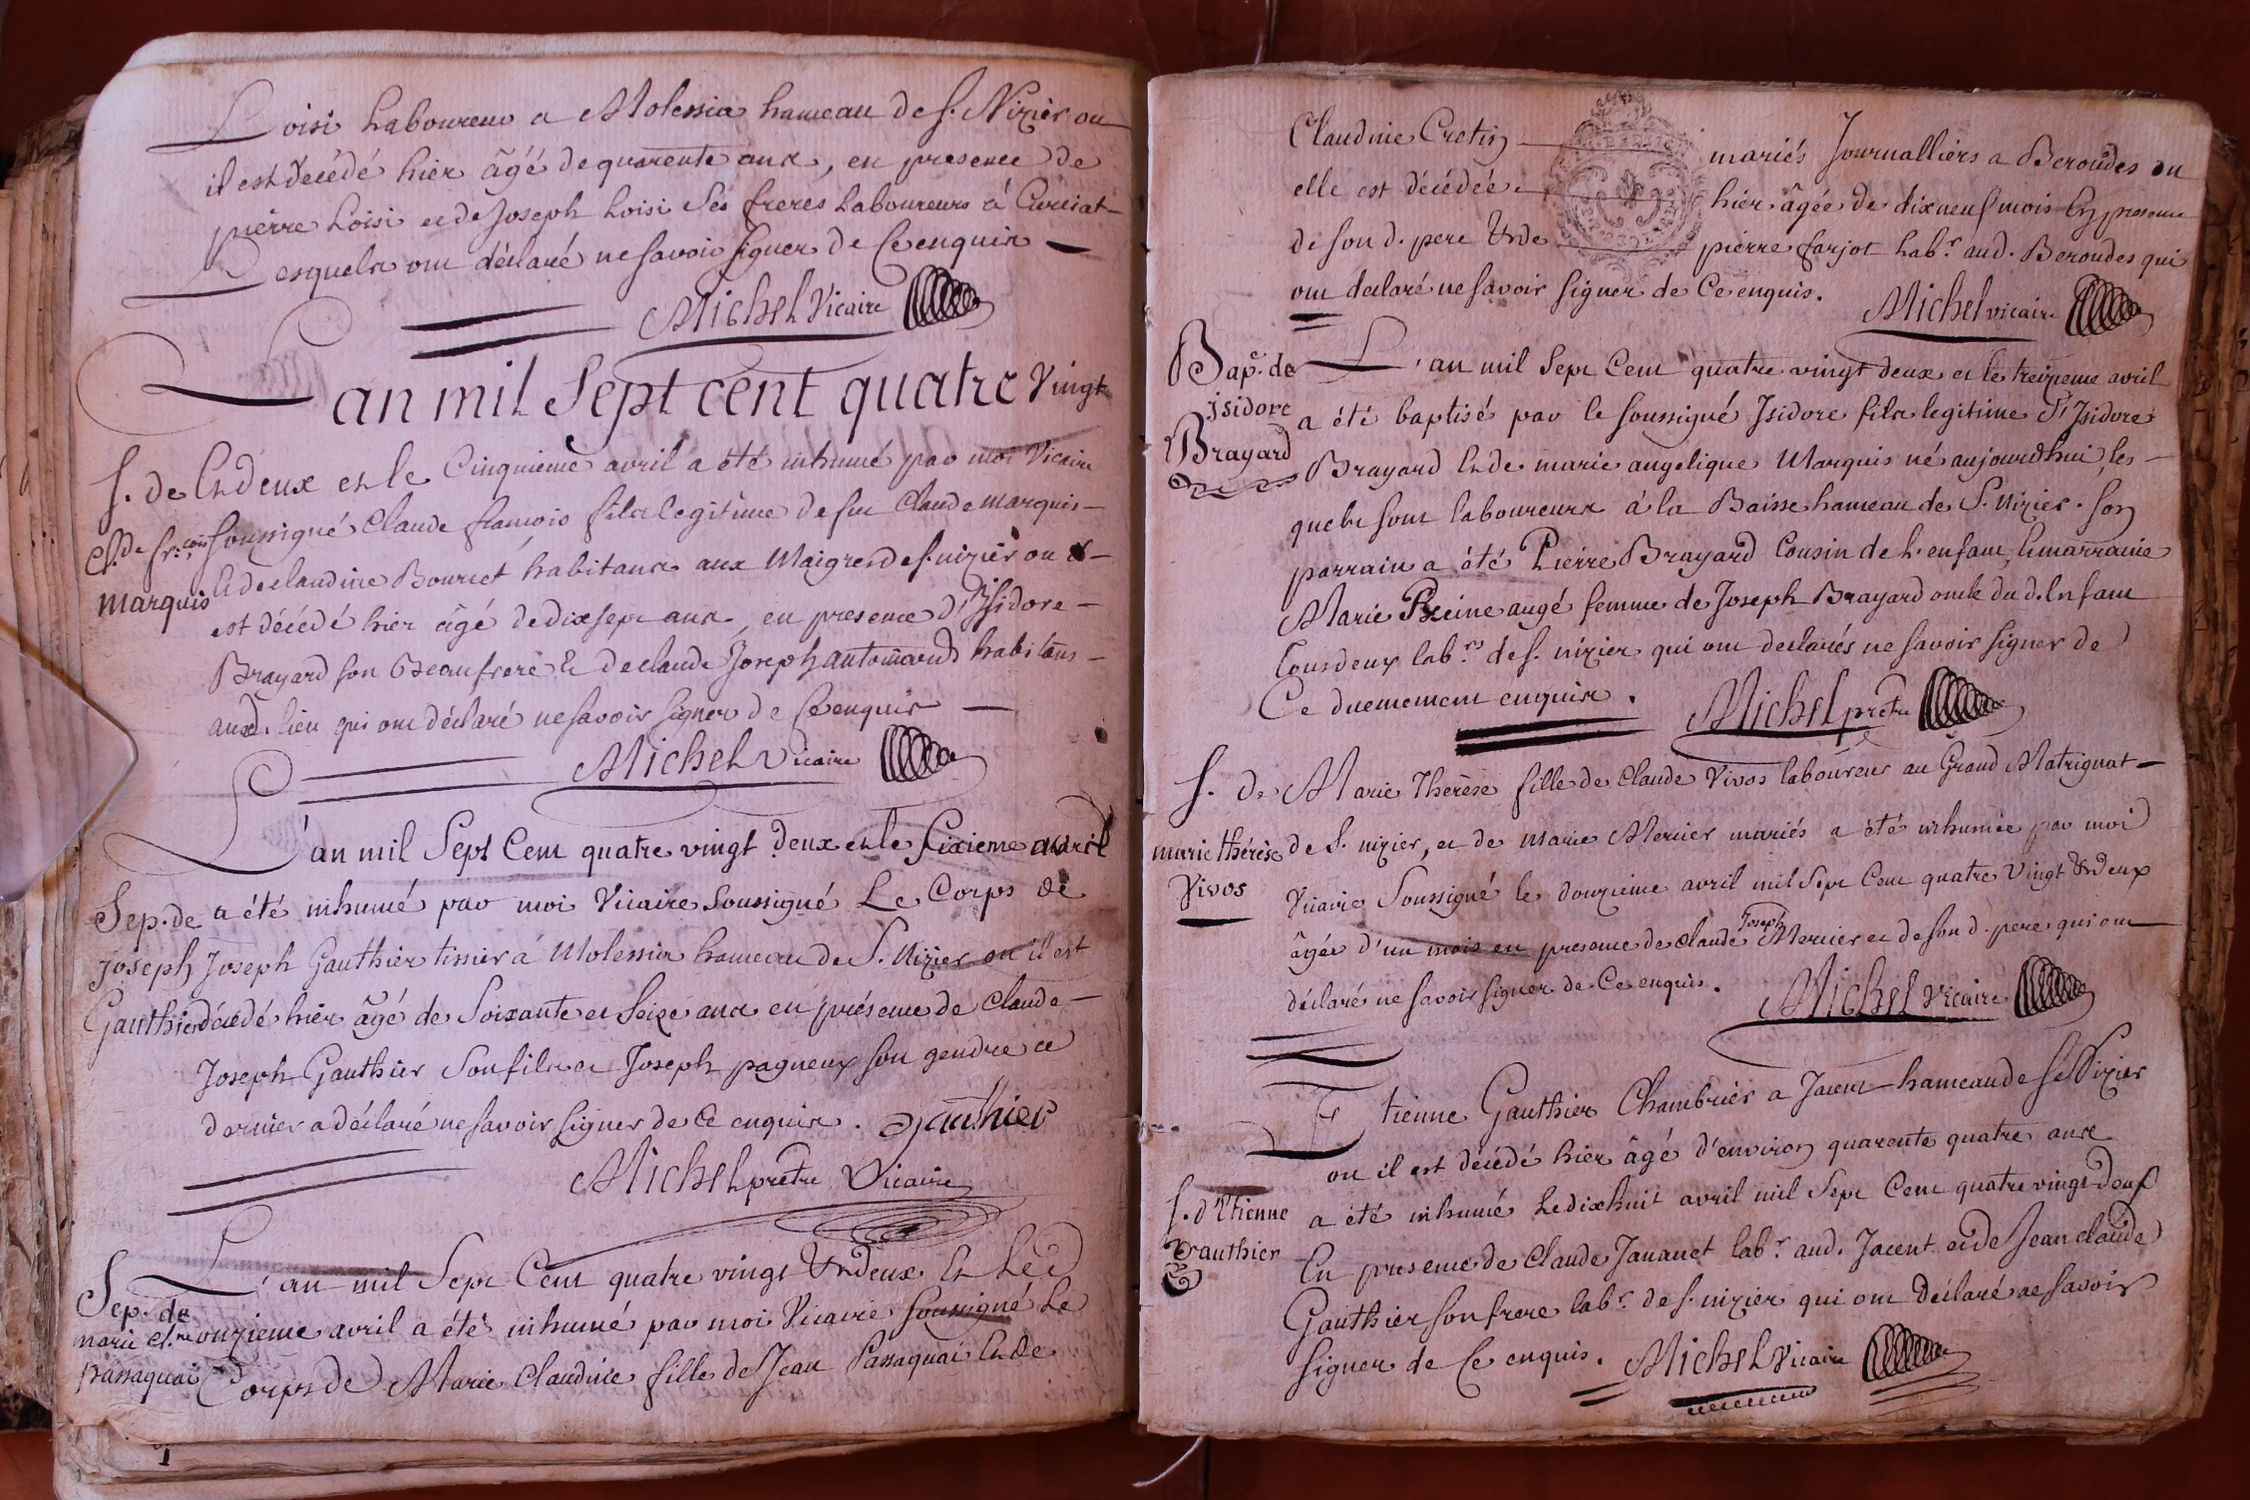 Loisi Laboureur a Molessia hameau de S. Nizier ou
il est decédé hier âgé de quarente ans, en presence de
pierre Loisi et de Joseph Loisi Ses freres Laboureurs à Curciat
Lesquels ont déclaré ne savoir signer de Ce enquis
Michel Vicaire
L'an mil Sept cent quatre Vingt
S. de
Et deux et le Cinquieme avril a été inhumé par moi Vicaire
Cl.de fr.cois
Soussigné Claude françois fils legitime de feu Claude marquis
marquis
Et de claudine Bourcet habitans aux Maigres de S. nizier ou
est décédé hier âgé de dix sept ans, en presence d'Isidore
Brayard son Beaufrere Et de claude Joseph antoinand habitans
aud. lieu qui ont déclaré ne savoir signer de Ce enquis
Michel Vicaire
L'an mil Sept Cent quatre vingt deux et le Sixieme avril
Sep. de
a été inhumé par moi Vicaire Soussigné Le Corps de
joseph
Joseph Gauthier tissier à Molessia hameau de S. Nizier ou il est
Gauthier
décédé hier âgé de Soixante et Seize ans en présence de Claude
Joseph Gauthier Son fils et Joseph pagneux son gendre ce
dernier a déclaré ne savoir signer de Ce enquis. Gauthier
Michel prêtre Vicaire
L'an mil Sept Cent quatre vingt Et deux Et Le
Sep. de
marie cl.ne
onzieme avril a été inhumé par moi Vicaire Soussigné Le
passaquai
Corps de Marie Claudine fille de Jean Passaquai Et de
Claudine Cretin mariés Journalliers a Beroudes ou
elle est décédée hier âgée de dix neuf mois En presence
de son d. pere Et de pierre farjot lab.r aud. Beroudes qui
ont declaré ne savoir signer de Ce enquis.
Michel vicaire
Bap. de
L'an mil Sept Cent quatre vingt deux et le treizieme avril
isidore
a été baptisé par le soussigné Isidore fils legitime d'Isidore
Brayard
Brayard Et de marie angelique Marquis né aujourdhui, les
quels sont laboureurs à la Baisse hameau de S. Nizier. Son
parrain a été Pierre Brayard Cousin de l'enfant, Et marraine
Marie Reine augé femme de Joseph Brayard oncle du d. Enfant
Tous deux lab.rs de S. nizier qui ont declarés ne savoir signer de
Ce duement enquis.
Michel prêtre
S. de
Marie Thérèse fille de Claude Vivos laboureur au Grand Matrignat
marie thérèse
de S. nizier, et de Marie Mercier mariés a été inhumée par moi
Vivos
Vicaire Soussigné le douzieme avril mil Sept Cent quatre Vingt Et deux
âgée d'un mois en presence de claude Joseph Mercier et de son d. pere qui ont
déclaré ne savoir signer de Ce enquis.
Michel Vicaire
Etienne Gauthier Chambrier a Jacent hameau de S. Nizier
ou il est décédé hier âgé d'environ quarente quatre ans
S. d'Etienne
a été inhumé Le dixhuit avril mil Sept Cent quatre vingt deux
Gauthier
En presence de Claude Jananet lab.r aud. Jacent et de Jean claude
Gauthier son frere lab.r de S. nizier qui ont Déclaré ne savoir
signer de Ce enquis.
Michel Vicaire